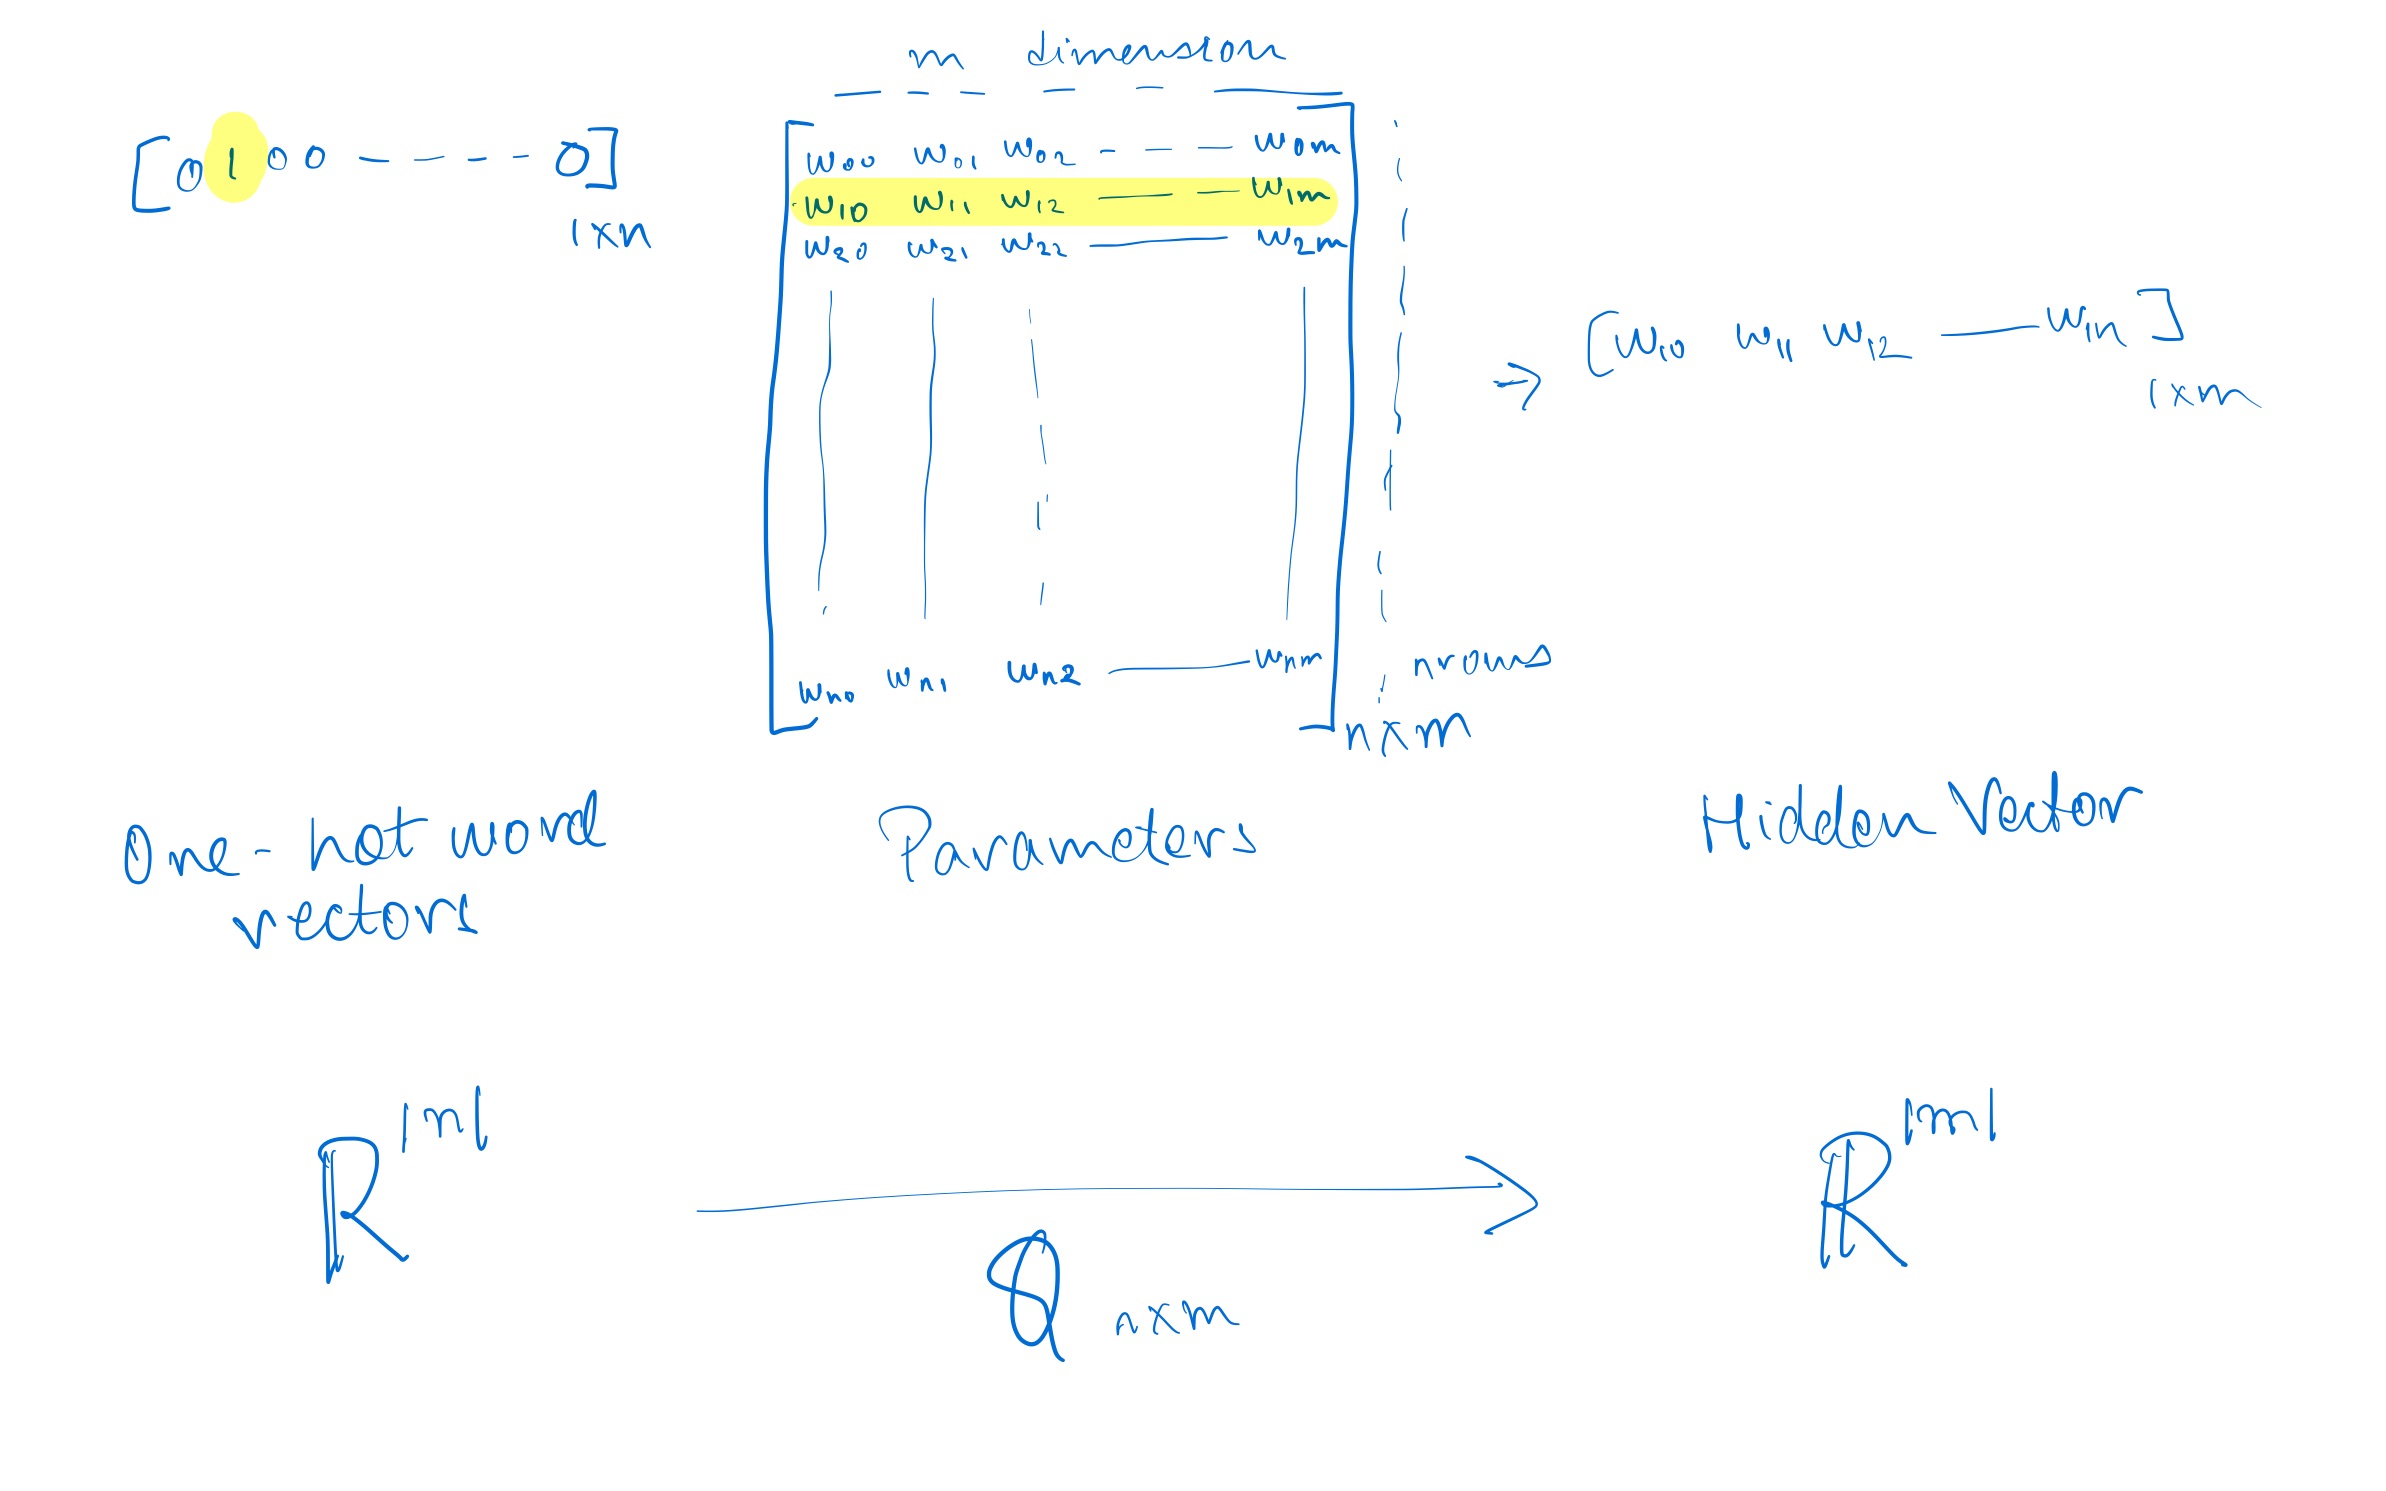 m dimension
[ 0 1 0 0 ----- 0 ]
1xn
w00 w01 w02 ---- w0m
w10 w11 w12 ---- w1m
w20 w21 w22 ---- w2m
wn0 wn1 wn2 ---- wnm
n rows
nxm
→ [ w10 w11 w12 ---- w1m ]
1xm
One-hot word
vectors
Parameters
Hidden Vector
R|n|
θ nxm
R|m|